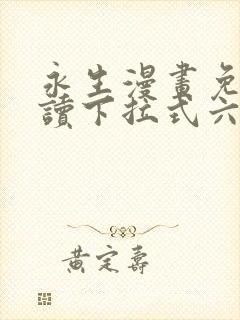 永生漫畫免
讀下拉式六
黃定壽